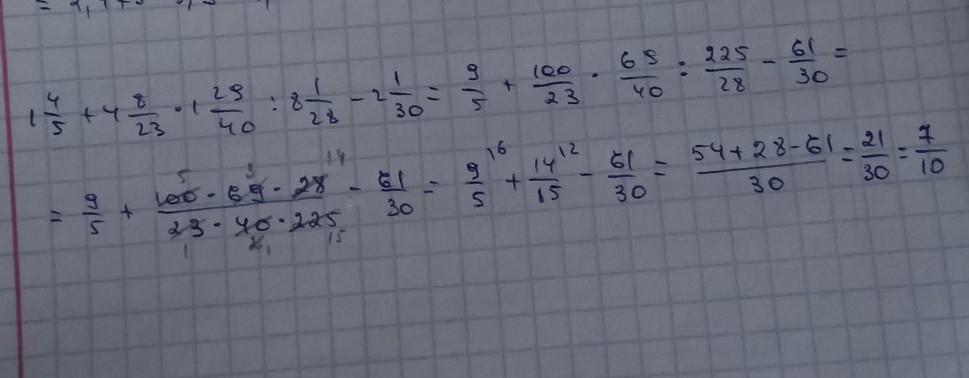 1 4/5 + 4 8/23 · 1 29/40 : 8 1/28 - 2 1/30 = 9/5 + 100/23 · 69/40 : 225/28 - 61/30 =
= 9/5 + (100 · 69 · 28)/(23 · 40 · 225) - 61/30 = 9/5 + 14/15 - 61/30 = (54 + 28 - 61)/30 = 21/30 = 7/10